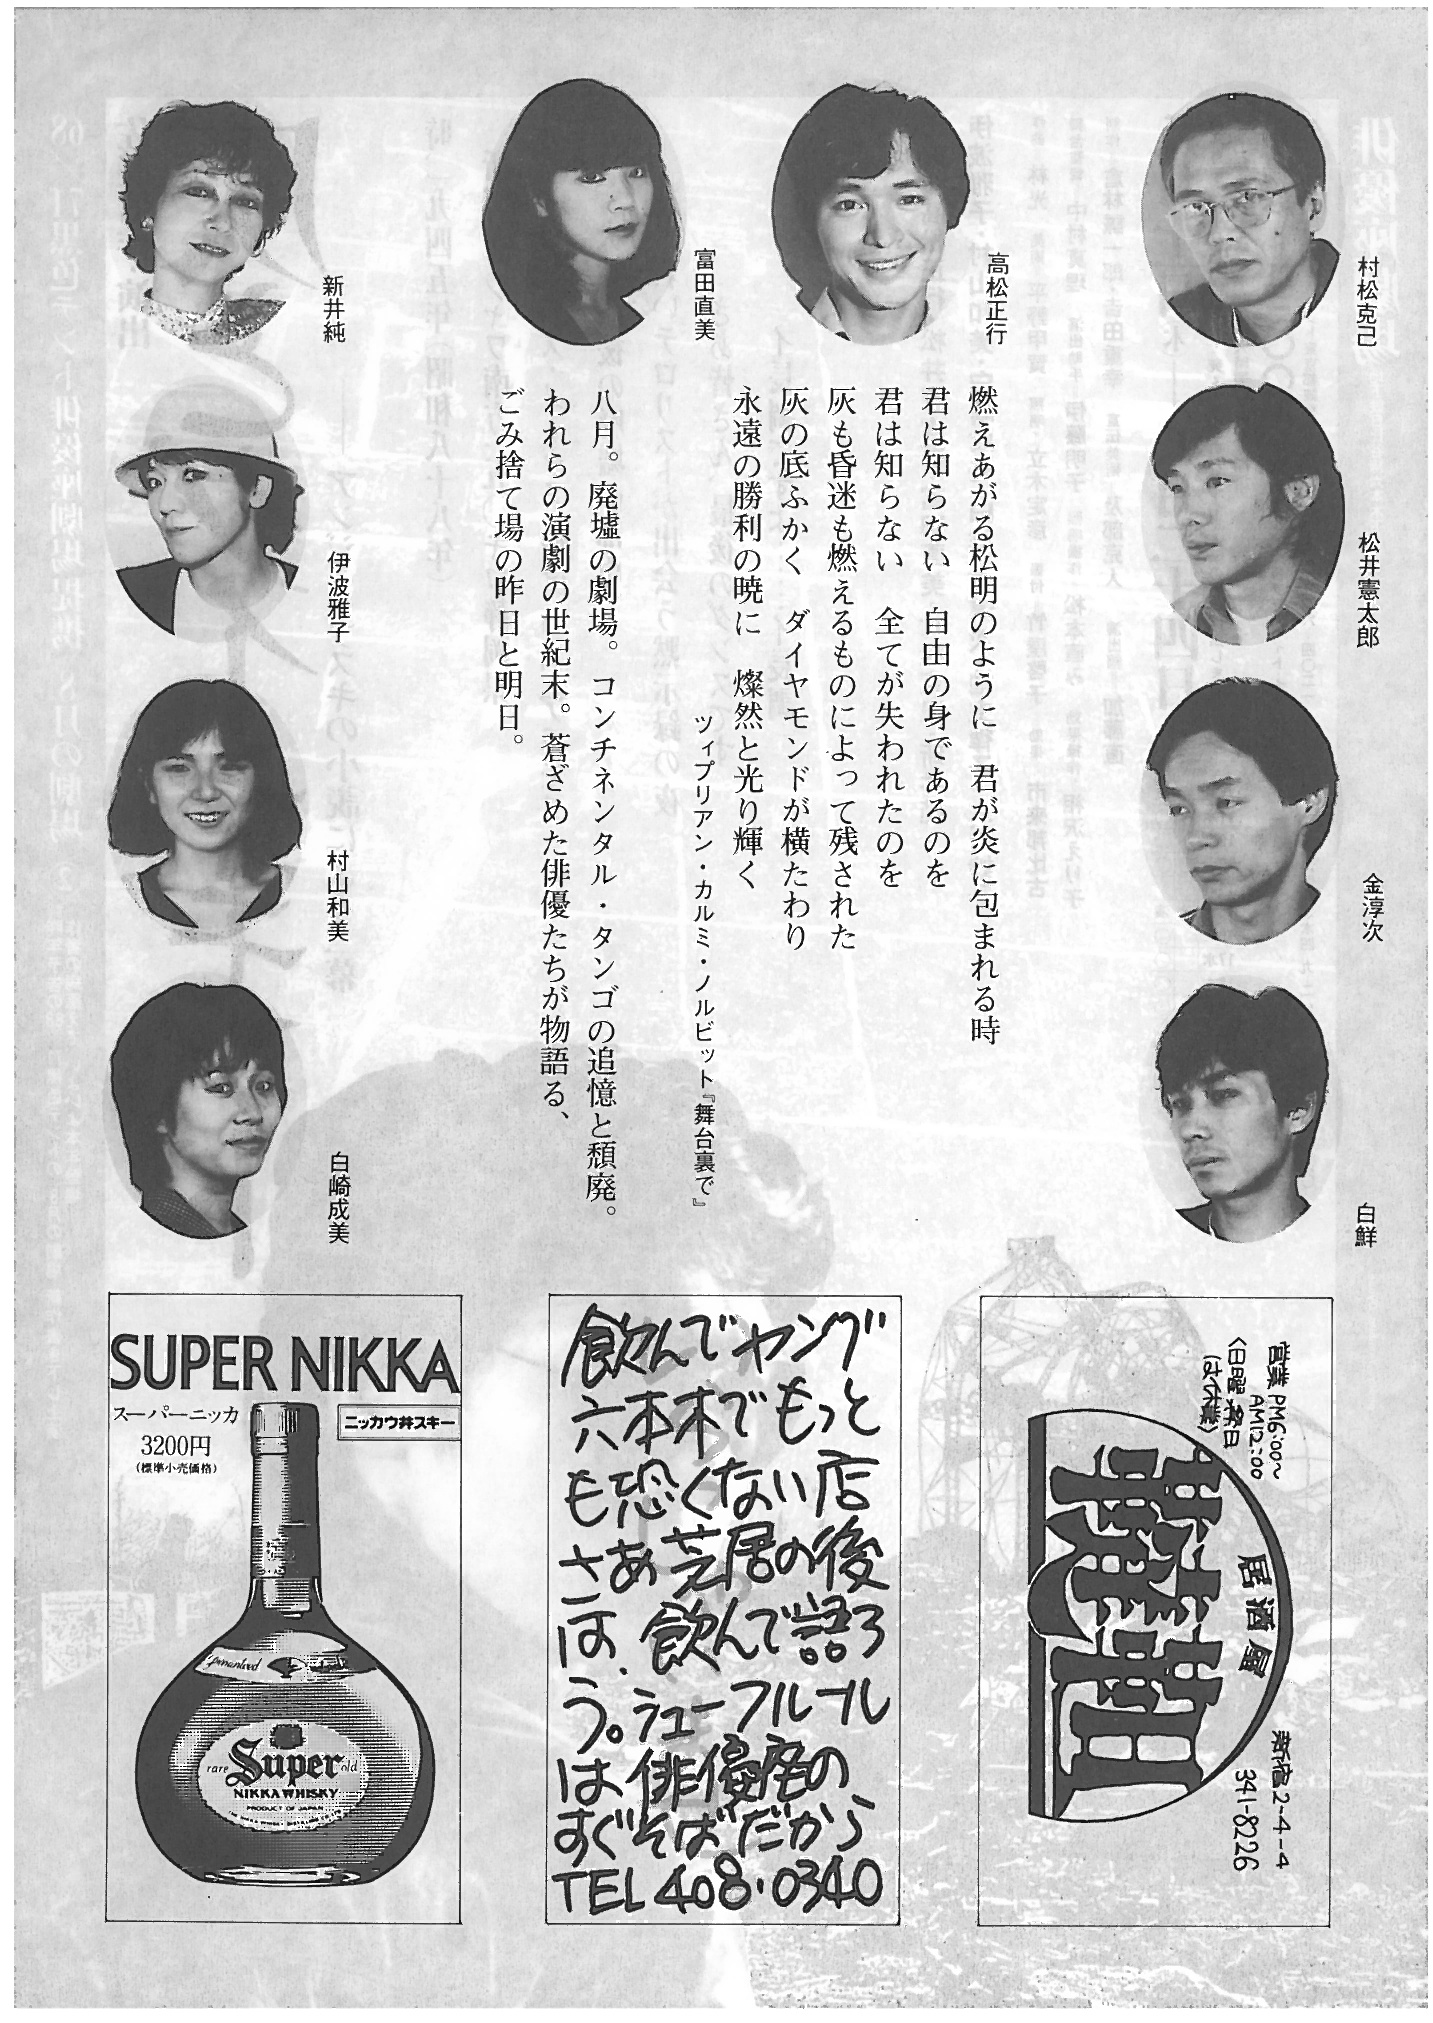 村松克己
高松正行
富田直美
新井純
松井憲太郎
伊波雅子
金淳次
村山和美
白鮮
白崎成美
燃えあがる松明のように 君が炎に包まれる時
君は知らない 自由の身であるのを
君は知らない 全てが失われたのを
灰も昏迷も燃えるものによって残された
灰の底ふかく ダイヤモンドが横たわり
永遠の勝利の暁に 燦然と光り輝く
ツィプリアン・カルミ・ノルビット『舞台裏で』
八月。廃墟の劇場。コンチネンタル・タンゴの追憶と頽廃。
われらの演劇の世紀末。蒼ざめた俳優たちが物語る、
ごみ捨て場の昨日と明日。
SUPER NIKKA
スーパーニッカ
ニッカウヰスキー
3200円
(標準小売価格)
Super
rare old
NIKKA WHISKY
PRODUCT OF JAPAN
飲んでヤング
六本木でもっと
も恐くない店
さあ芝居の後
は、飲んで語ろ
う。シューフルール
は俳優座の
すぐそばだから
TEL 408・0340
営業 PM6:00〜
AM12:00
〈日曜祭日
は休業〉
居酒屋
新宿2-4-4
341-8226